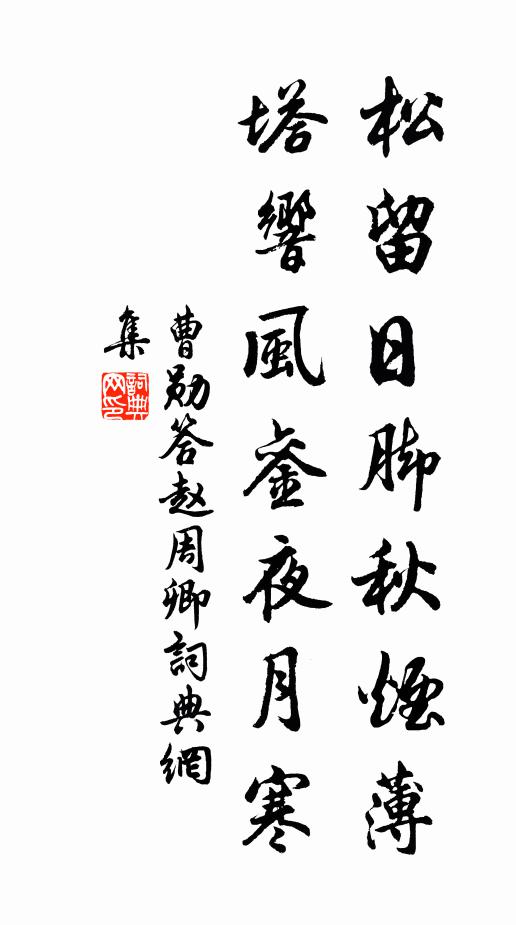 松留日脚秋煙薄
塔響風銮夜月寒
曹勛答赵周卿詞典網
集
詞典网印